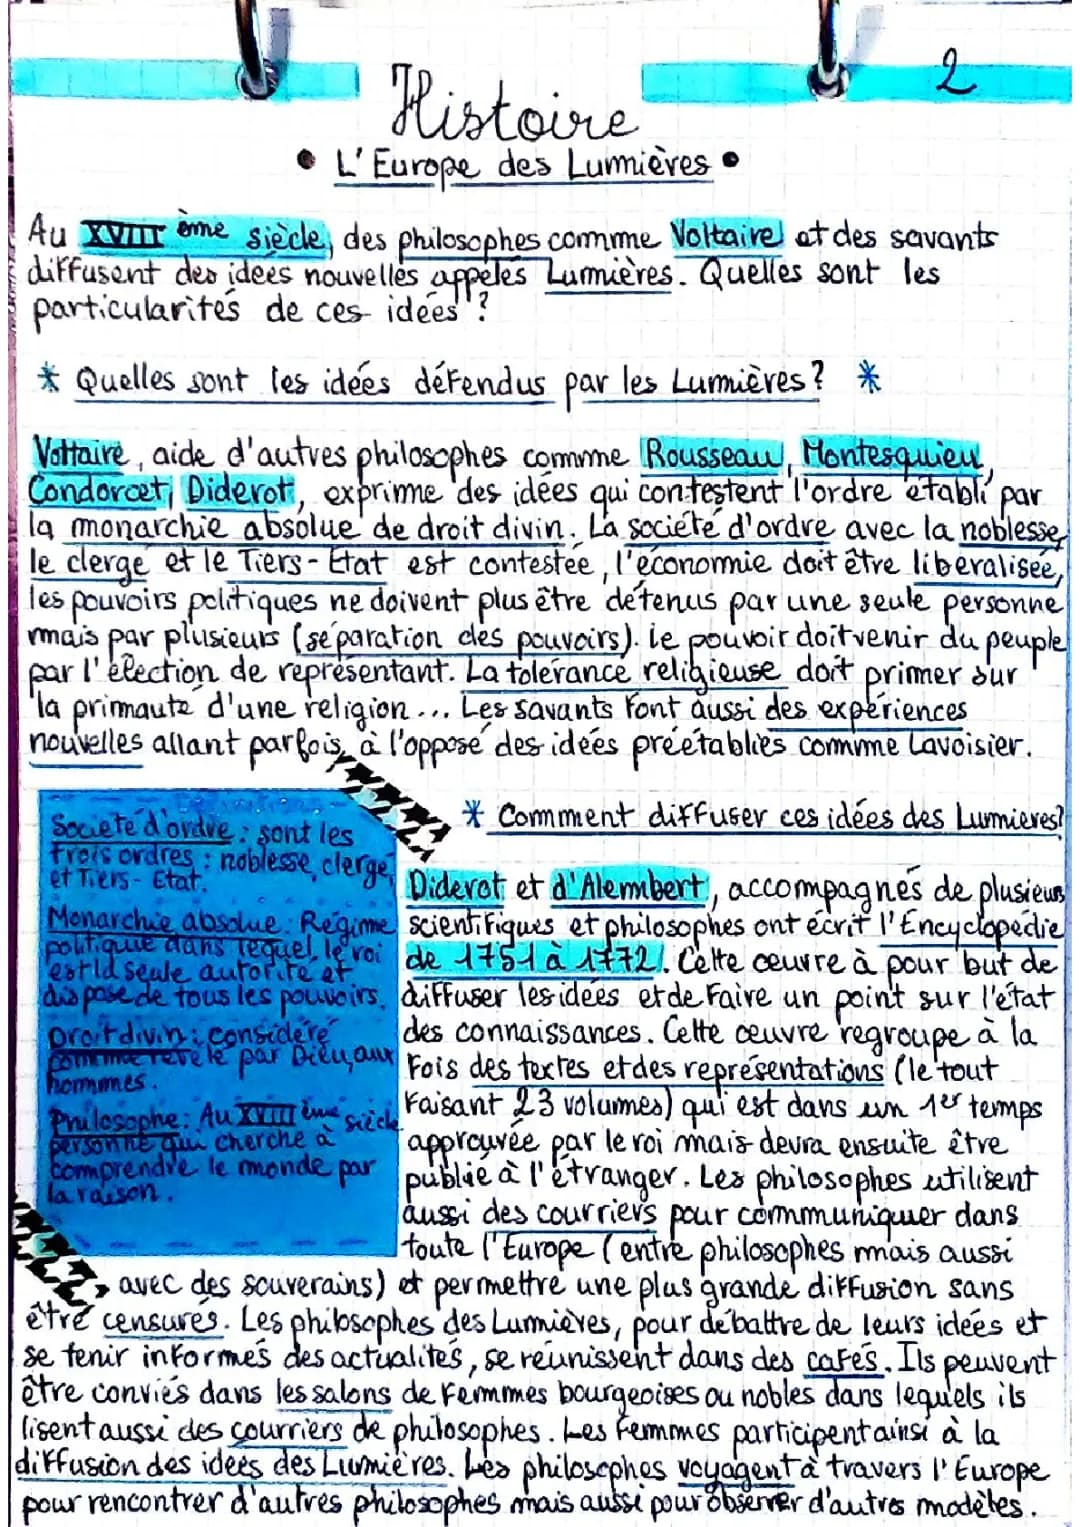 2
Histoire
• L'Europe des Lumières •
Au XVIII ème siècle, des philosophes comme Voltaire et des savants
diffusent des idées nouvelles appelés Lumières. Quelles sont les
particularités de ces idées ?
* Quelles sont les idées défendus par les Lumières ? *
Voltaire, aide d'autres philosophes comme Rousseau, Montesquieu,
Condorcet, Diderot, exprime des idées qui contestent l'ordre établi par
la monarchie absolue de droit divin. La société d'ordre avec la noblesse,
le clergé et le Tiers-État est contestée, l'économie doit être liberalisée,
les pouvoirs politiques ne doivent plus être détenus par une seule personne
mais par plusieurs (séparation des pouvoirs). Le pouvoir doit venir du peuple
par l'élection de représentant. La tolérance religieuse doit primer sur
la primauté d'une religion... Les savants font aussi des expériences
nouvelles allant parfois à l'opposé des idées préétablies comme Lavoisier.
Societé d'ordre : sont les
trois ordres : noblesse, clergé,
et Tiers-État.
Monarchie absolue : Régime
politique dans lequel le roi
est la seule autorité et
dispose de tous les pouvoirs.
Droit divin : considéré
comme révélé par Dieu, aux
hommes.
Philosophe : Au XVIII ème siècle
personne qui cherche à
comprendre le monde par
la raison.
* Comment diffuser ces idées des Lumieres ?
Diderot et d'Alembert, accompagnés de plusieurs
scientifiques et philosophes ont écrit l'Encyclopédie
de 1751 à 1772. Cette œuvre à pour but de
diffuser les idées et de faire un point sur l'état
des connaissances. Cette œuvre regroupe à la
fois des textes et des représentations (le tout
faisant 23 volumes) qui est dans un 1er temps
approuvée par le roi mais devra ensuite être
publié à l'étranger. Les philosophes utilisent
aussi des courriers pour communiquer dans
toute l'Europe (entre philosophes mais aussi
avec des souverains) et permettre une plus grande diffusion sans
être censurés. Les philosophes des Lumières, pour débattre de leurs idées et
se tenir informés des actualités, se réunissent dans des cafés. Ils peuvent
être conviés dans les salons de femmes bourgeoises ou nobles dans lequels ils
lisent aussi des courriers de philosophes. Les femmes participent ainsi à la
diffusion des idées des Lumières. Les philosophes voyagent à travers l'Europe
pour rencontrer d'autres philosophes mais aussi pour observer d'autres modèles.